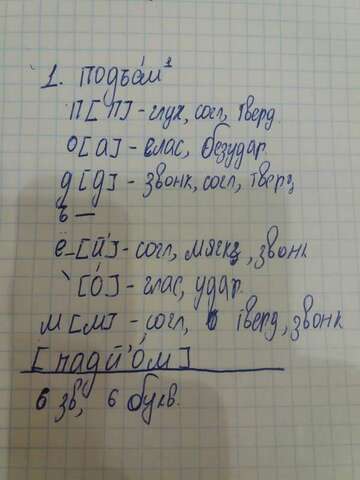 1. подъём¹
п [п] - глух, согл, тверд.
о [а] - глас, безудар.
д [д] - звонк, согл, тверд
ъ —
ё - [й'] - согл, мягк, звонк
\ [о́] - глас, удар.
м [м] - согл, тверд, звонк
[падй'ом]
6 зв, 6 букв.